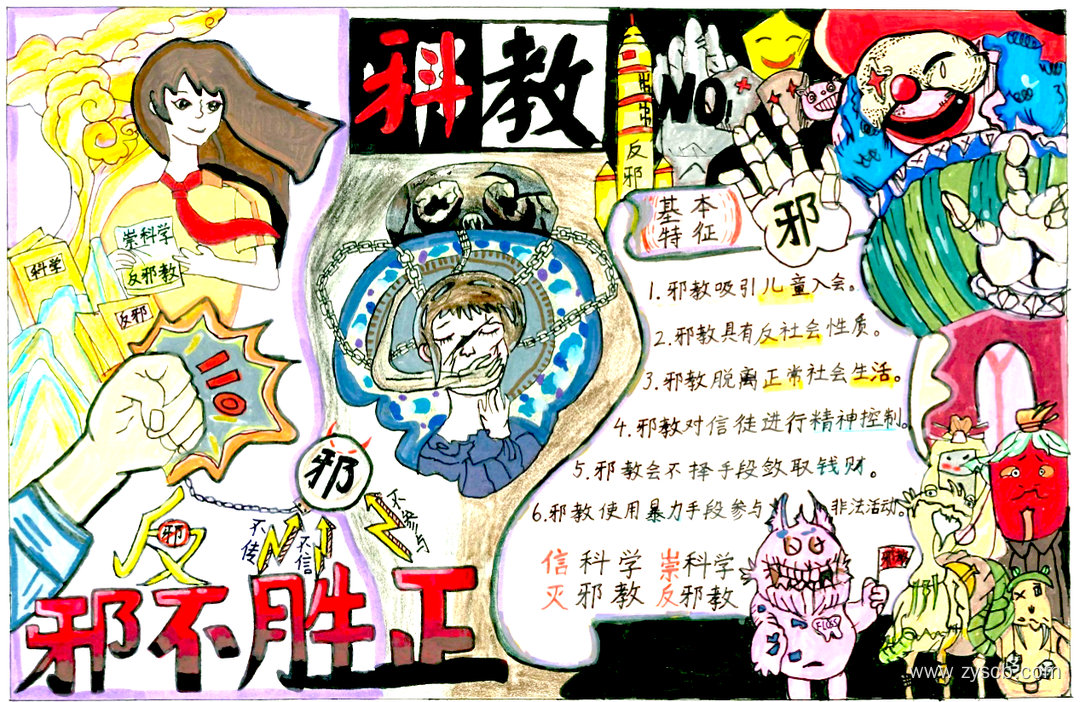 科教
崇科学
反邪教
科学
反邪
NO!
反邪
基本
特征
邪
1.邪教吸引儿童入会。
2.邪教具有反社会性质。
3.邪教脱离正常社会生活。
4.邪教对信徒进行精神控制。
5.邪教会不择手段敛取钱财。
6.邪教使用暴力手段参与非法活动。
信科学 崇科学
灭邪教 反邪教
邪教
邪
不传
不信
不参与
反
邪
邪不胜正
www.zyscb.com